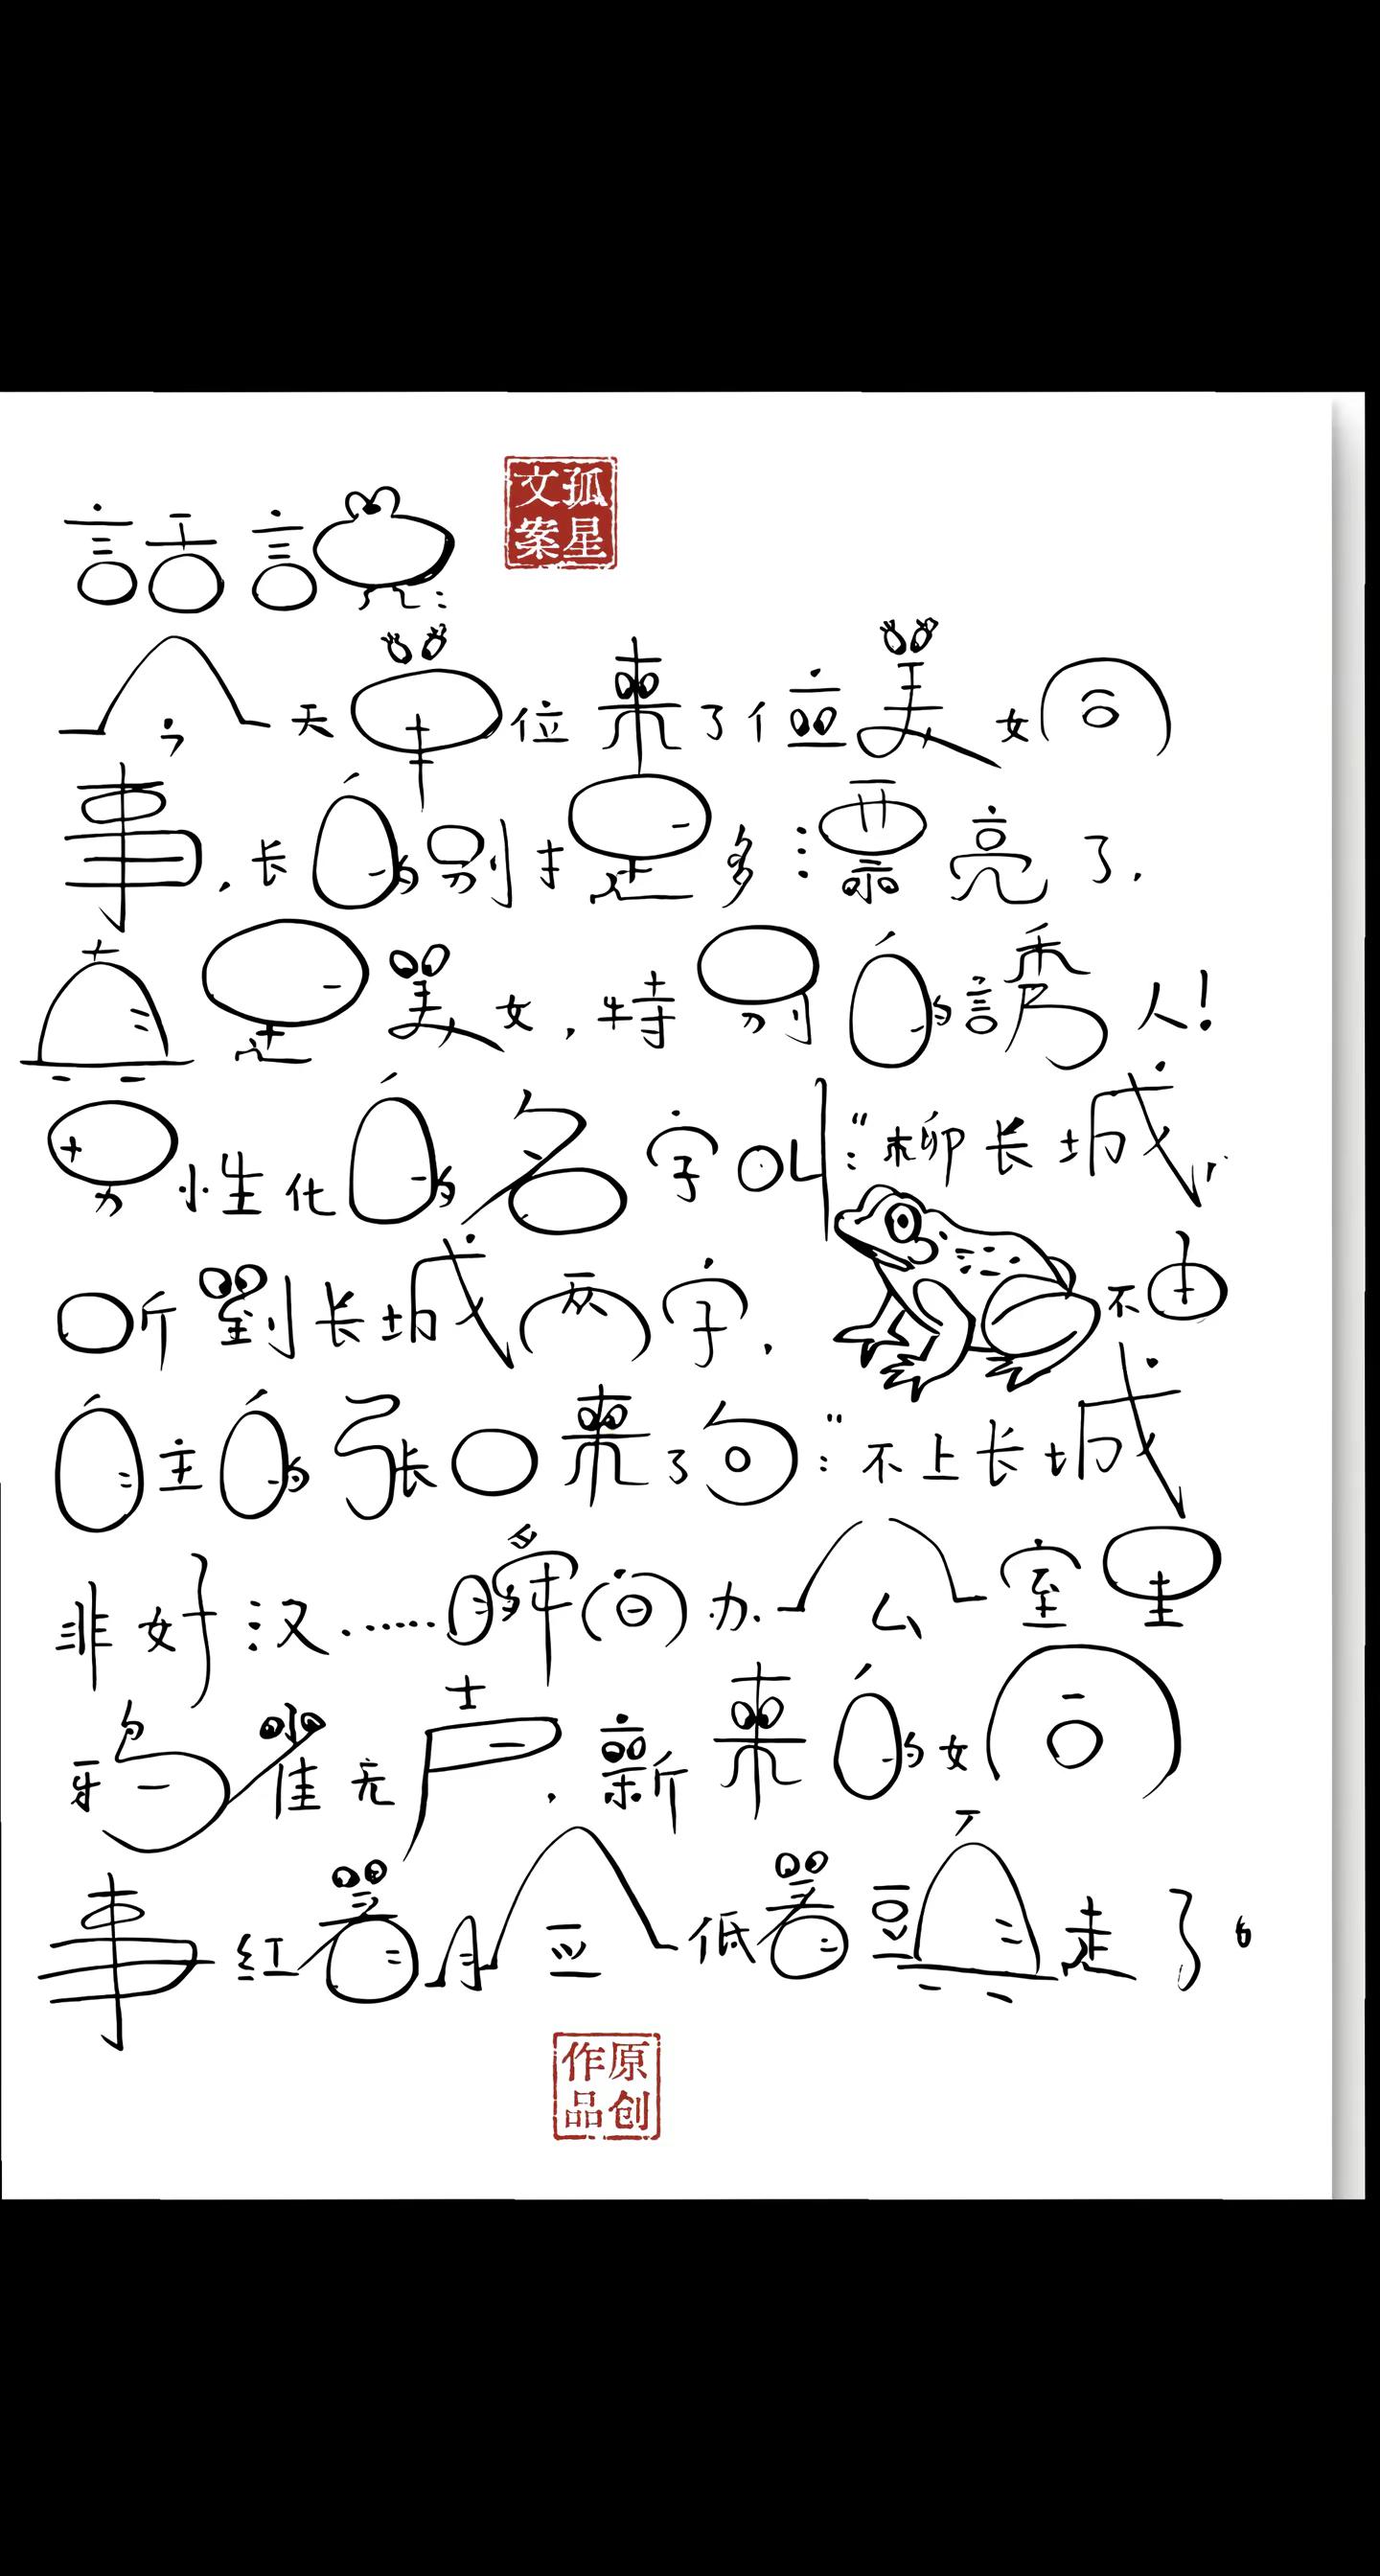 孤星文案
話說:
今天單位來了位美女同
事,长的别提多漂亮了,
真是美女,特别的誘人!
男性化的名字叫:"柳长城"
听劉长城两字,不由
自主的张口來了句:"不上长城
非好汉……瞬间办公室里
鸦雀无声,新來的女同
事红着脸低着头走了。
原创作品